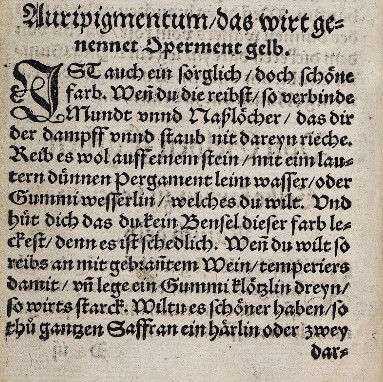 Auripigmentum/das wirt ge-
nennet Operment gelb.
IST auch ein sorglich/doch schöne
farb. Weñ du die reibst/so verbinde
Mundt vnnd Naßlöcher/das dir
der dampff vnnd staub nit dareyn rieche.
Reib es wol auff einem stein/mit eim lau-
tern dünnen Pergament leim wasser/oder
Gummi wesserlin/welches du wilt. Vnd
hüt dich das du kein Bensel dieser farb le-
ckest/denn es ist schedlich. Weñ du wilt so
reibs an mit gebrañtem Wein/temperiers
damit/vñ lege ein Gummi klötzlin dreyn/
so wirts starck. Wiltu es schöner haben/so
thů gantzen Saffran ein härlin oder zwey
dar-